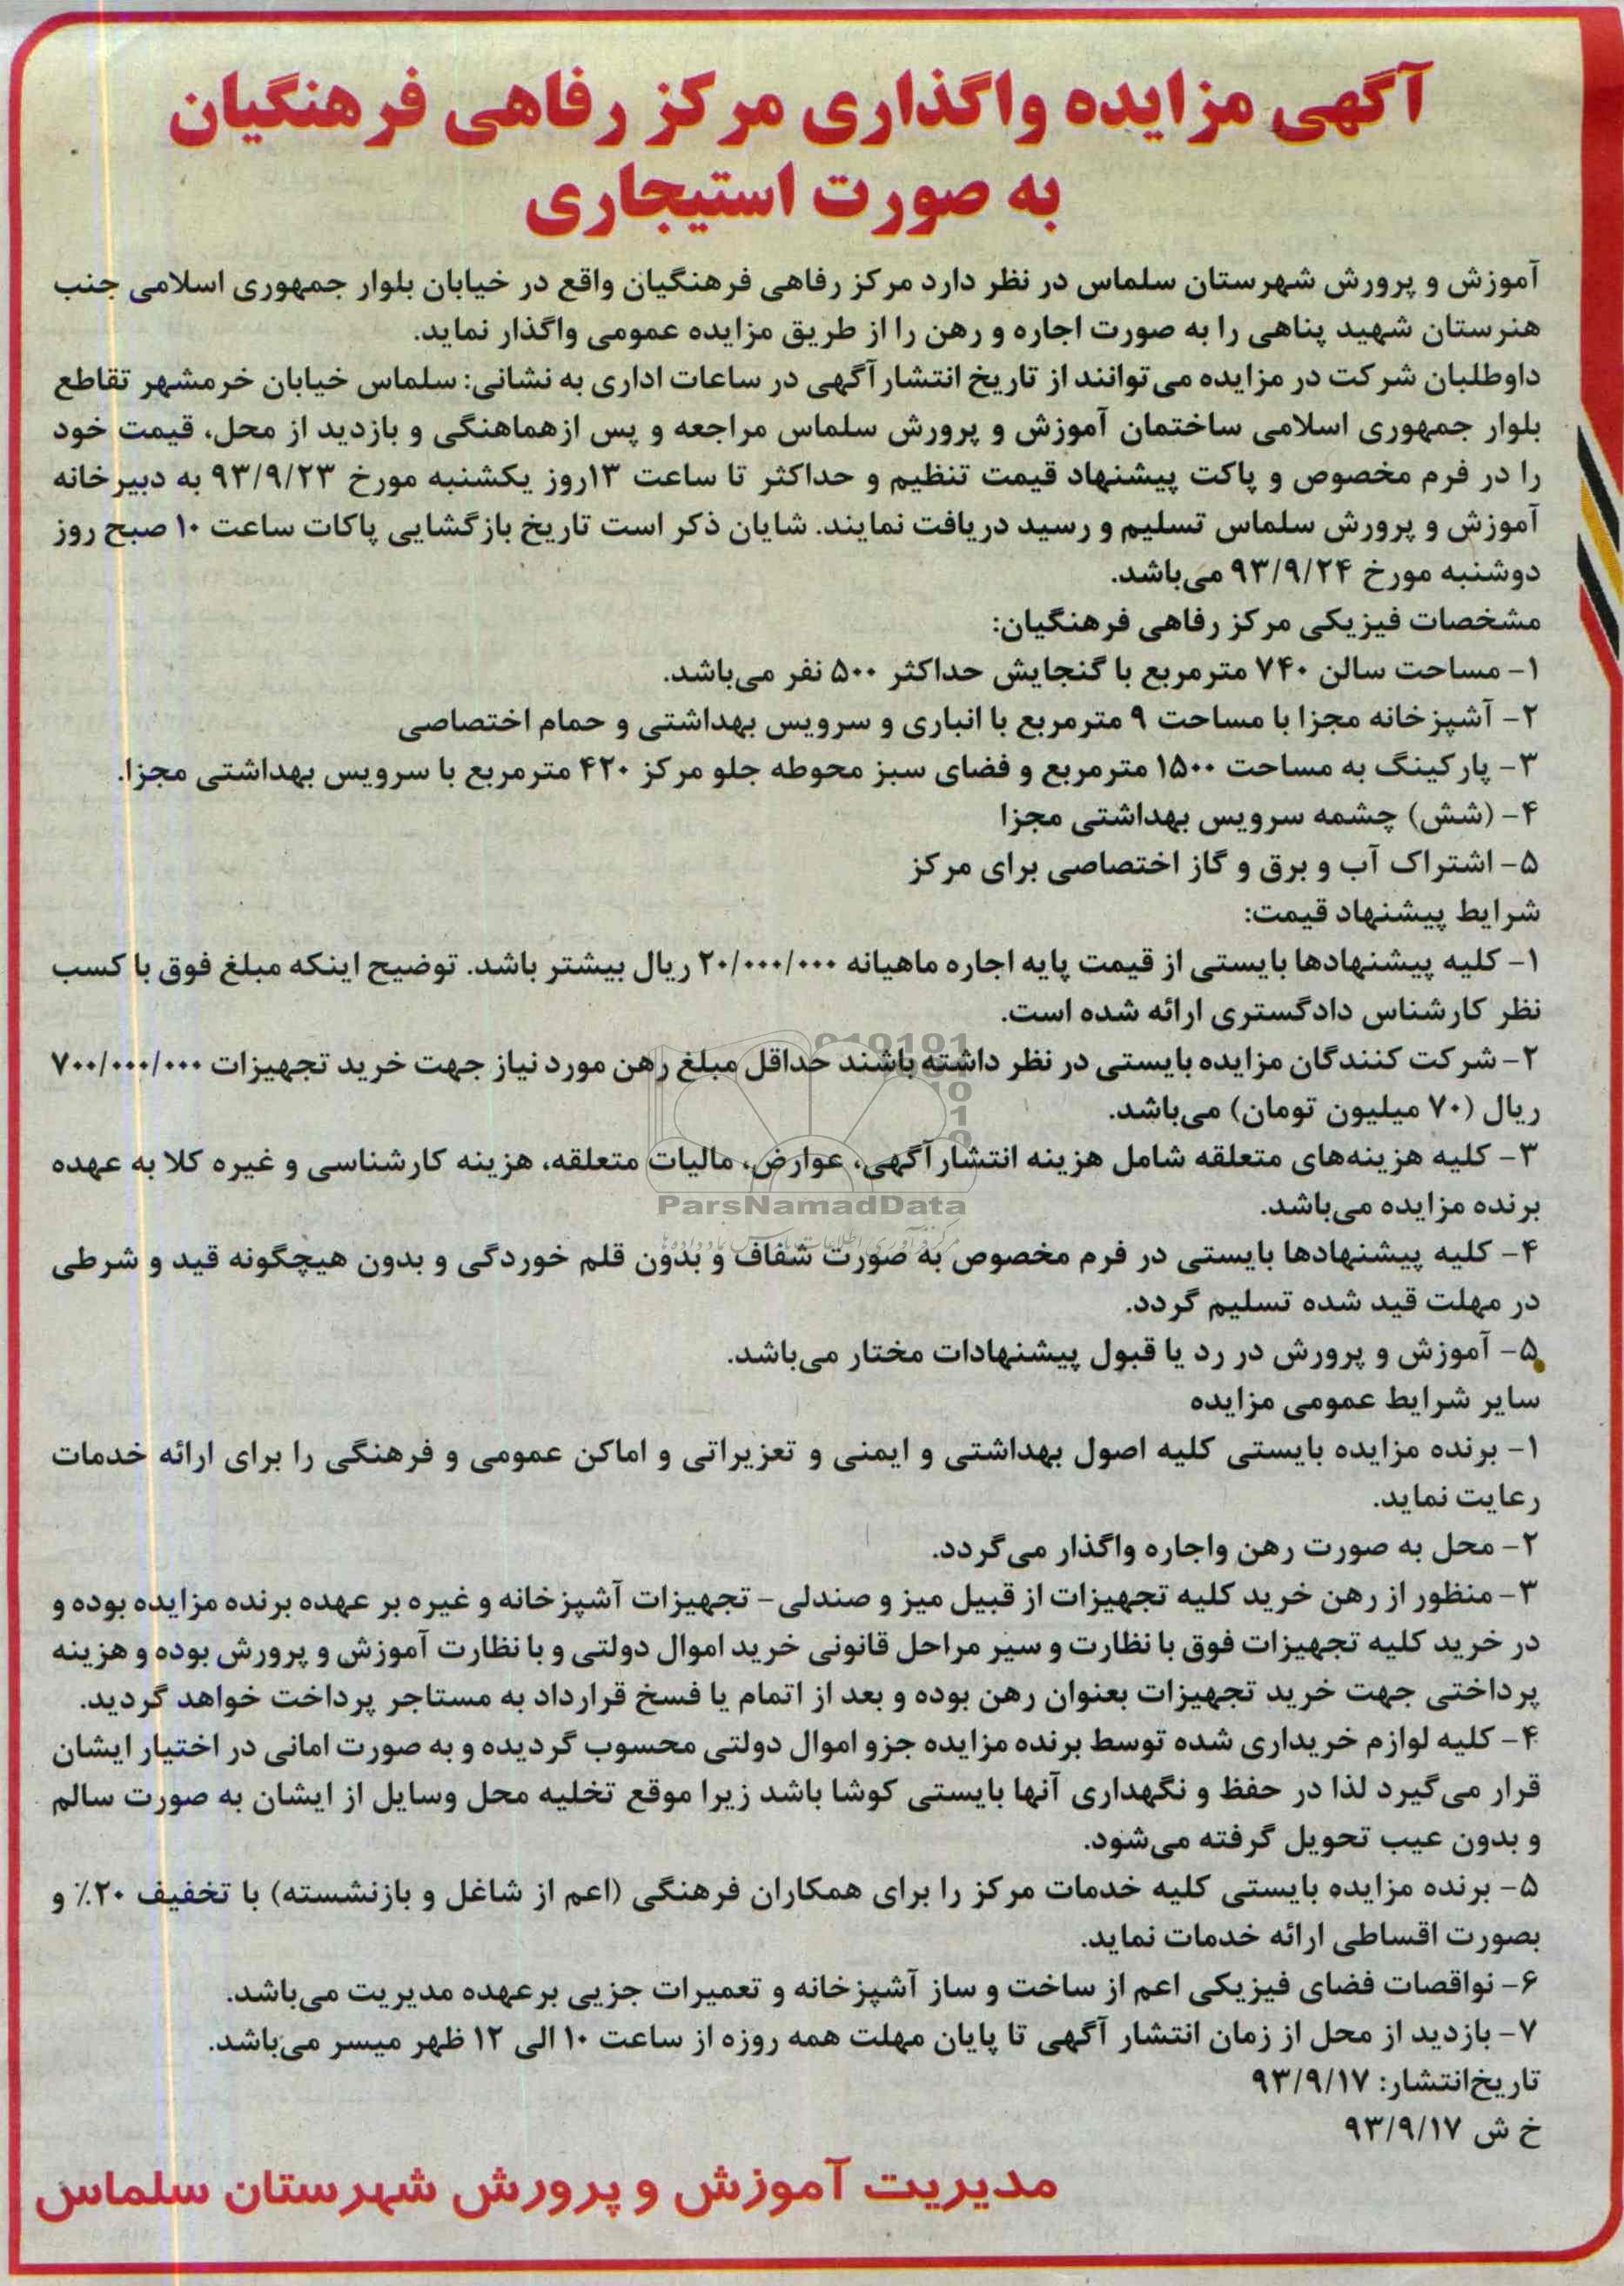 آگهی مزایده واگذاری مرکز رفاهی فرهنگیان
به صورت استیجاری
آموزش و پرورش شهرستان سلماس در نظر دارد مرکز رفاهی فرهنگیان واقع در خیابان بلوار جمهوری اسلامی جنب
هنرستان شهید پناهی را به صورت اجاره و رهن را از طریق مزایده عمومی واگذار نماید.
داوطلبان شرکت در مزایده می‌توانند از تاریخ انتشار آگهی در ساعات اداری به نشانی: سلماس خیابان خرمشهر تقاطع
بلوار جمهوری اسلامی ساختمان آموزش و پرورش سلماس مراجعه و پس ازهماهنگی و بازدید از محل، قیمت خود
را در فرم مخصوص و پاکت پیشنهاد قیمت تنظیم و حداکثر تا ساعت ۱۳روز یکشنبه مورخ ۹۳/۹/۲۳ به دبیرخانه
آموزش و پرورش سلماس تسلیم و رسید دریافت نمایند. شایان ذکر است تاریخ بازگشایی پاکات ساعت ۱۰ صبح روز
دوشنبه مورخ ۹۳/۹/۲۴ می‌باشد.
مشخصات فیزیکی مرکز رفاهی فرهنگیان:
۱- مساحت سالن ۷۴۰ مترمربع با گنجایش حداکثر ۵۰۰ نفر می‌باشد.
۲- آشپزخانه مجزا با مساحت ۹ مترمربع با انباری و سرویس بهداشتی و حمام اختصاصی
۳- پارکینگ به مساحت ۱۵۰۰ مترمربع و فضای سبز محوطه جلو مرکز ۴۲۰ مترمربع با سرویس بهداشتی مجزا.
۴- (شش) چشمه سرویس بهداشتی مجزا
۵- اشتراک آب و برق و گاز اختصاصی برای مرکز
شرایط پیشنهاد قیمت:
۱- کلیه پیشنهادها بایستی از قیمت پایه اجاره ماهیانه ۲۰/۰۰۰/۰۰۰ ریال بیشتر باشد. توضیح اینکه مبلغ فوق با کسب
نظر کارشناس دادگستری ارائه شده است.
۲- شرکت کنندگان مزایده بایستی در نظر داشته باشند حداقل مبلغ رهن مورد نیاز جهت خرید تجهیزات ۷۰۰/۰۰۰/۰۰۰
ریال (۷۰ میلیون تومان) می‌باشد.
۳- کلیه هزینه‌های متعلقه شامل هزینه انتشار آگهی، عوارض، مالیات متعلقه، هزینه کارشناسی و غیره کلا به عهده
برنده مزایده می‌باشد.
ParsNamadData
۴- کلیه پیشنهادها بایستی در فرم مخصوص به صورت شفاف و بدون قلم خوردگی و بدون هیچگونه قید و شرطی
در مهلت قید شده تسلیم گردد.
۵- آموزش و پرورش در رد یا قبول پیشنهادات مختار می‌باشد.
سایر شرایط عمومی مزایده
۱- برنده مزایده بایستی کلیه اصول بهداشتی و ایمنی و تعزیراتی و اماکن عمومی و فرهنگی را برای ارائه خدمات
رعایت نماید.
۲- محل به صورت رهن واجاره واگذار می‌گردد.
۳- منظور از رهن خرید کلیه تجهیزات از قبیل میز و صندلی- تجهیزات آشپزخانه و غیره بر عهده برنده مزایده بوده و
در خرید کلیه تجهیزات فوق با نظارت و سیر مراحل قانونی خرید اموال دولتی و با نظارت آموزش و پرورش بوده و هزینه
پرداختی جهت خرید تجهیزات بعنوان رهن بوده و بعد از اتمام یا فسخ قرارداد به مستاجر پرداخت خواهد گردید.
۴- کلیه لوازم خریداری شده توسط برنده مزایده جزو اموال دولتی محسوب گردیده و به صورت امانی در اختیار ایشان
قرار می‌گیرد لذا در حفظ و نگهداری آنها بایستی کوشا باشد زیرا موقع تخلیه محل وسایل از ایشان به صورت سالم
و بدون عیب تحویل گرفته می‌شود.
۵- برنده مزایده بایستی کلیه خدمات مرکز را برای همکاران فرهنگی (اعم از شاغل و بازنشسته) با تخفیف ۲۰٪ و
بصورت اقساطی ارائه خدمات نماید.
۶- نواقصات فضای فیزیکی اعم از ساخت و ساز آشپزخانه و تعمیرات جزیی برعهده مدیریت می‌باشد.
۷- بازدید از محل از زمان انتشار آگهی تا پایان مهلت همه روزه از ساعت ۱۰ الی ۱۲ ظهر میسر می‌باشد.
تاریخ‌انتشار: ۹۳/۹/۱۷
خ ش ۹۳/۹/۱۷
مدیریت آموزش و پرورش شهرستان سلماس